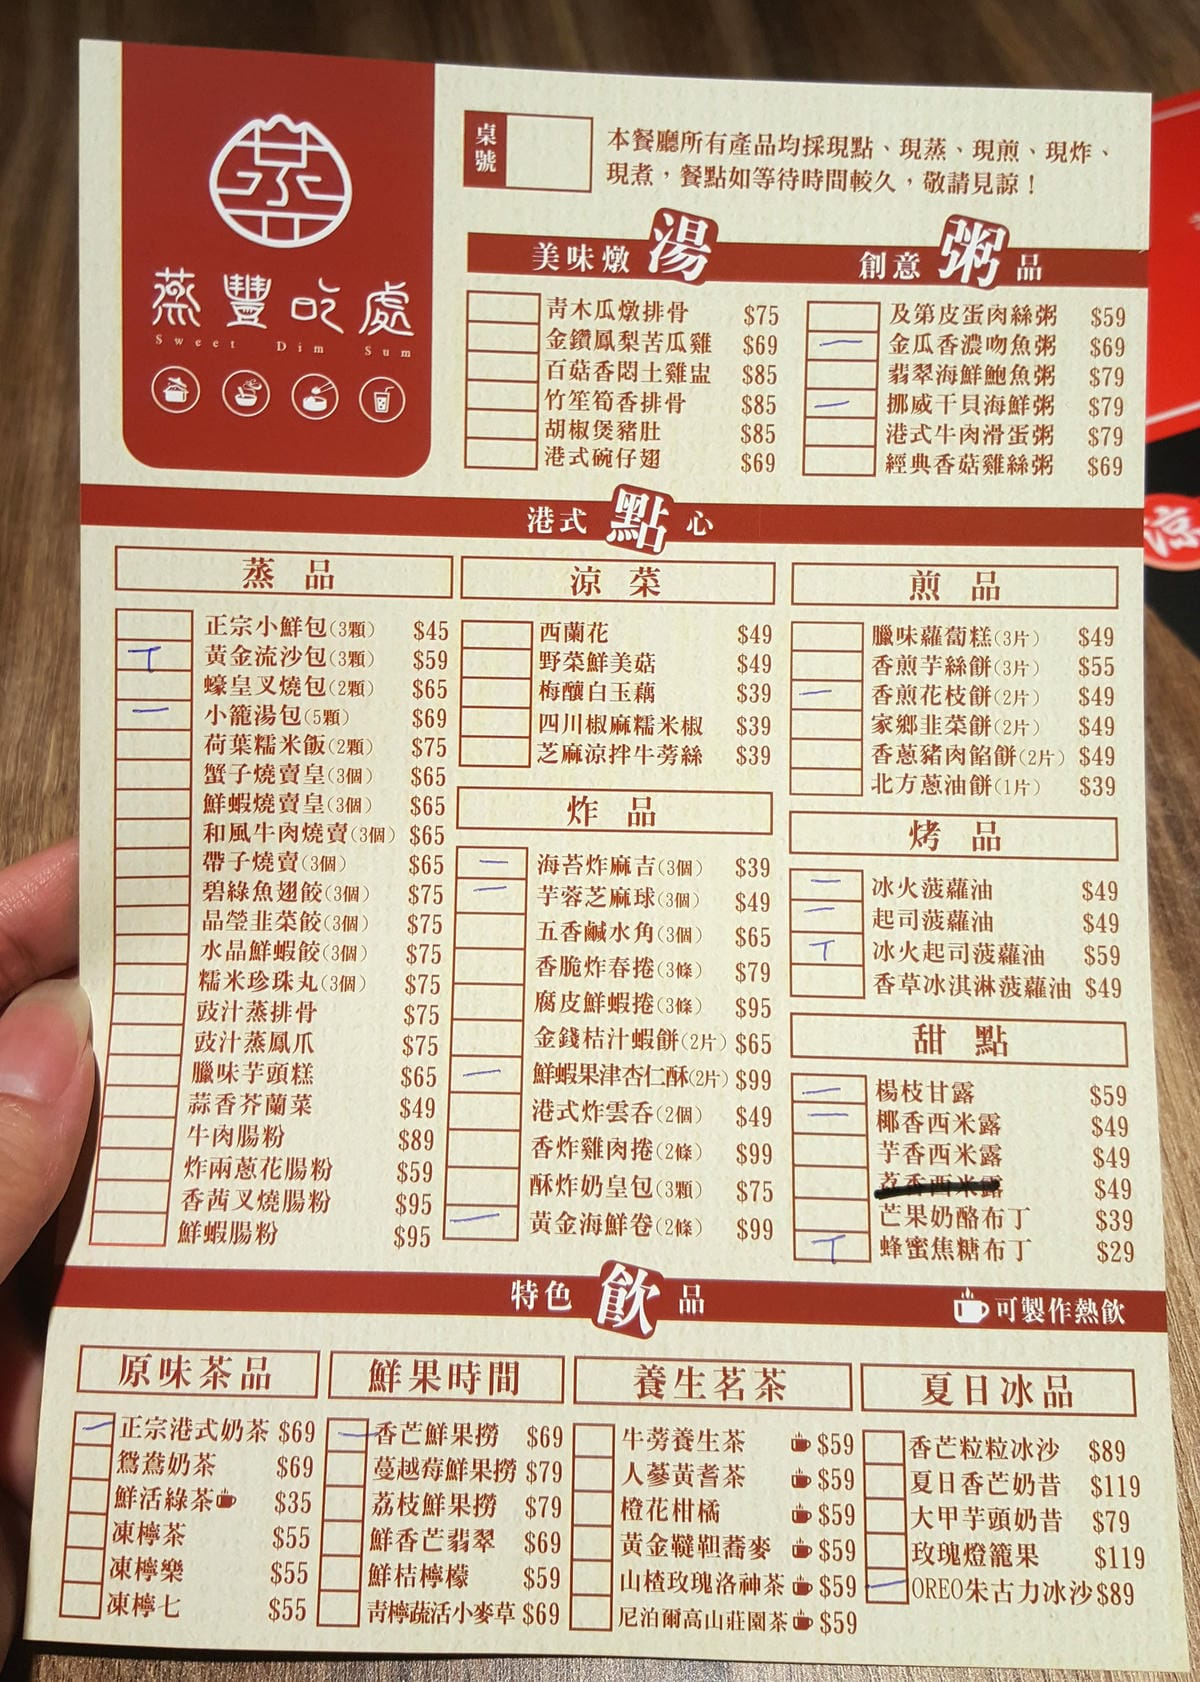 蒸豐吃處
Sweet Dim Sum
桌號
本餐廳所有產品均採現點、現蒸、現煎、現炸、
現煮，餐點如等待時間較久，敬請見諒！
美味燉湯
青木瓜燉排骨 $75
金鑽鳳梨苦瓜雞 $69
百菇香悶土雞盅 $85
竹笙筍香排骨 $85
胡椒煲豬肚 $85
港式碗仔翅 $69
創意粥品
及第皮蛋肉絲粥 $59
金瓜香濃吻魚粥 $69
翡翠海鮮鮑魚粥 $79
挪威干貝海鮮粥 $79
港式牛肉滑蛋粥 $79
經典香菇雞絲粥 $69
港式點心
蒸品
正宗小鮮包(3顆) $45
黃金流沙包(3顆) $59
蠔皇叉燒包(2顆) $65
小籠湯包(5顆) $69
荷葉糯米飯(2顆) $75
蟹子燒賣皇(3個) $65
鮮蝦燒賣皇(3個) $65
和風牛肉燒賣(3個) $65
帶子燒賣(3個) $65
碧綠魚翅餃(3個) $75
晶瑩韭菜餃(3個) $75
水晶鮮蝦餃(3個) $75
糯米珍珠丸(3個) $75
豉汁蒸排骨 $75
豉汁蒸鳳爪 $75
臘味芋頭糕 $65
蒜香芥蘭菜 $49
牛肉腸粉 $89
炸兩蔥花腸粉 $59
香茜叉燒腸粉 $95
鮮蝦腸粉 $95
涼菜
西蘭花 $49
野菜鮮美菇 $49
梅釀白玉藕 $39
四川椒麻糯米椒 $39
芝麻涼拌牛蒡絲 $39
炸品
海苔炸麻吉(3個) $39
芋蓉芝麻球(3個) $49
五香鹹水角(3個) $65
香脆炸春捲(3條) $79
腐皮鮮蝦捲(3條) $95
金錢桔汁蝦餅(2片) $65
鮮蝦果津杏仁酥(2片) $99
港式炸雲吞(2個) $49
香炸雞肉捲(2條) $99
酥炸奶皇包(3顆) $75
黃金海鮮卷(2條) $99
煎品
臘味蘿蔔糕(3片) $49
香煎芋絲餅(3片) $55
香煎花枝餅(2片) $49
家鄉韭菜餅(2片) $49
香蔥豬肉餡餅(2片) $49
北方蔥油餅(1片) $39
烤品
冰火菠蘿油 $49
起司菠蘿油 $49
冰火起司菠蘿油 $59
香草冰淇淋菠蘿油 $49
甜點
楊枝甘露 $59
椰香西米露 $49
芋香西米露 $49
荔香西米露 $49
芒果奶酪布丁 $39
蜂蜜焦糖布丁 $29
特色飲品
可製作熱飲
原味茶品
正宗港式奶茶 $69
鴛鴦奶茶 $69
鮮活綠茶 $35
凍檸茶 $55
凍檸樂 $55
凍檸七 $55
鮮果時間
香芒鮮果撈 $69
蔓越莓鮮果撈 $79
荔枝鮮果撈 $79
鮮香芒翡翠 $69
鮮桔檸檬 $59
青檸蔬活小麥草 $69
養生茗茶
牛蒡養生茶 $59
人蔘黃耆茶 $59
橙花柑橘 $59
黃金韃靼蕎麥 $59
山楂玫瑰洛神茶 $59
尼泊爾高山莊園茶 $59
夏日冰品
香芒粒粒冰沙 $89
夏日香芒奶昔 $119
大甲芋頭奶昔 $79
玫瑰燈籠果 $119
OREO朱古力冰沙 $89
涼